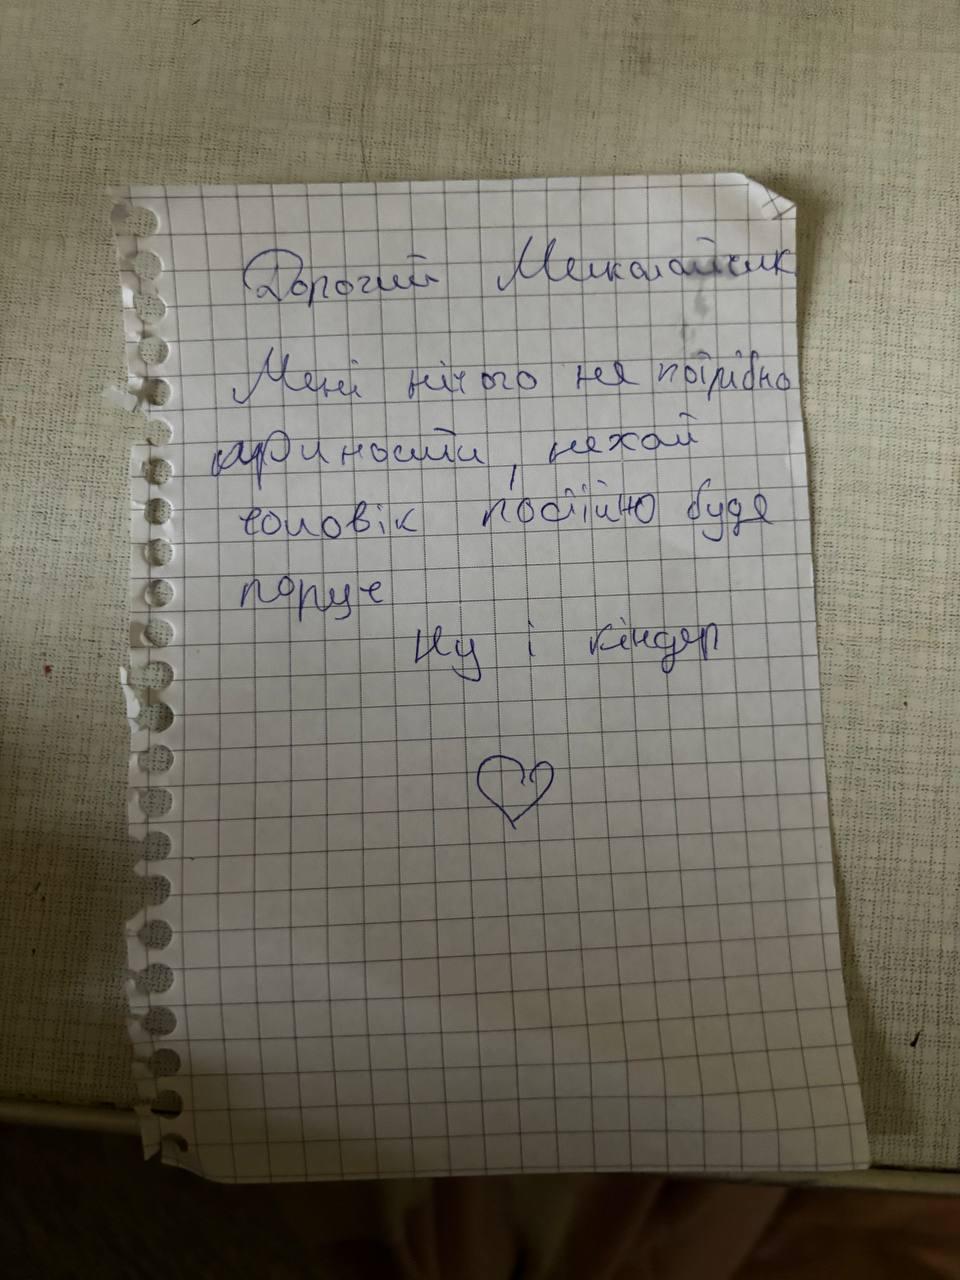 Дорогий Миколайчик
Мені нічого не потрібно
приносити, нехай
чоловік постійно буде
поруч
Ну і кіндер